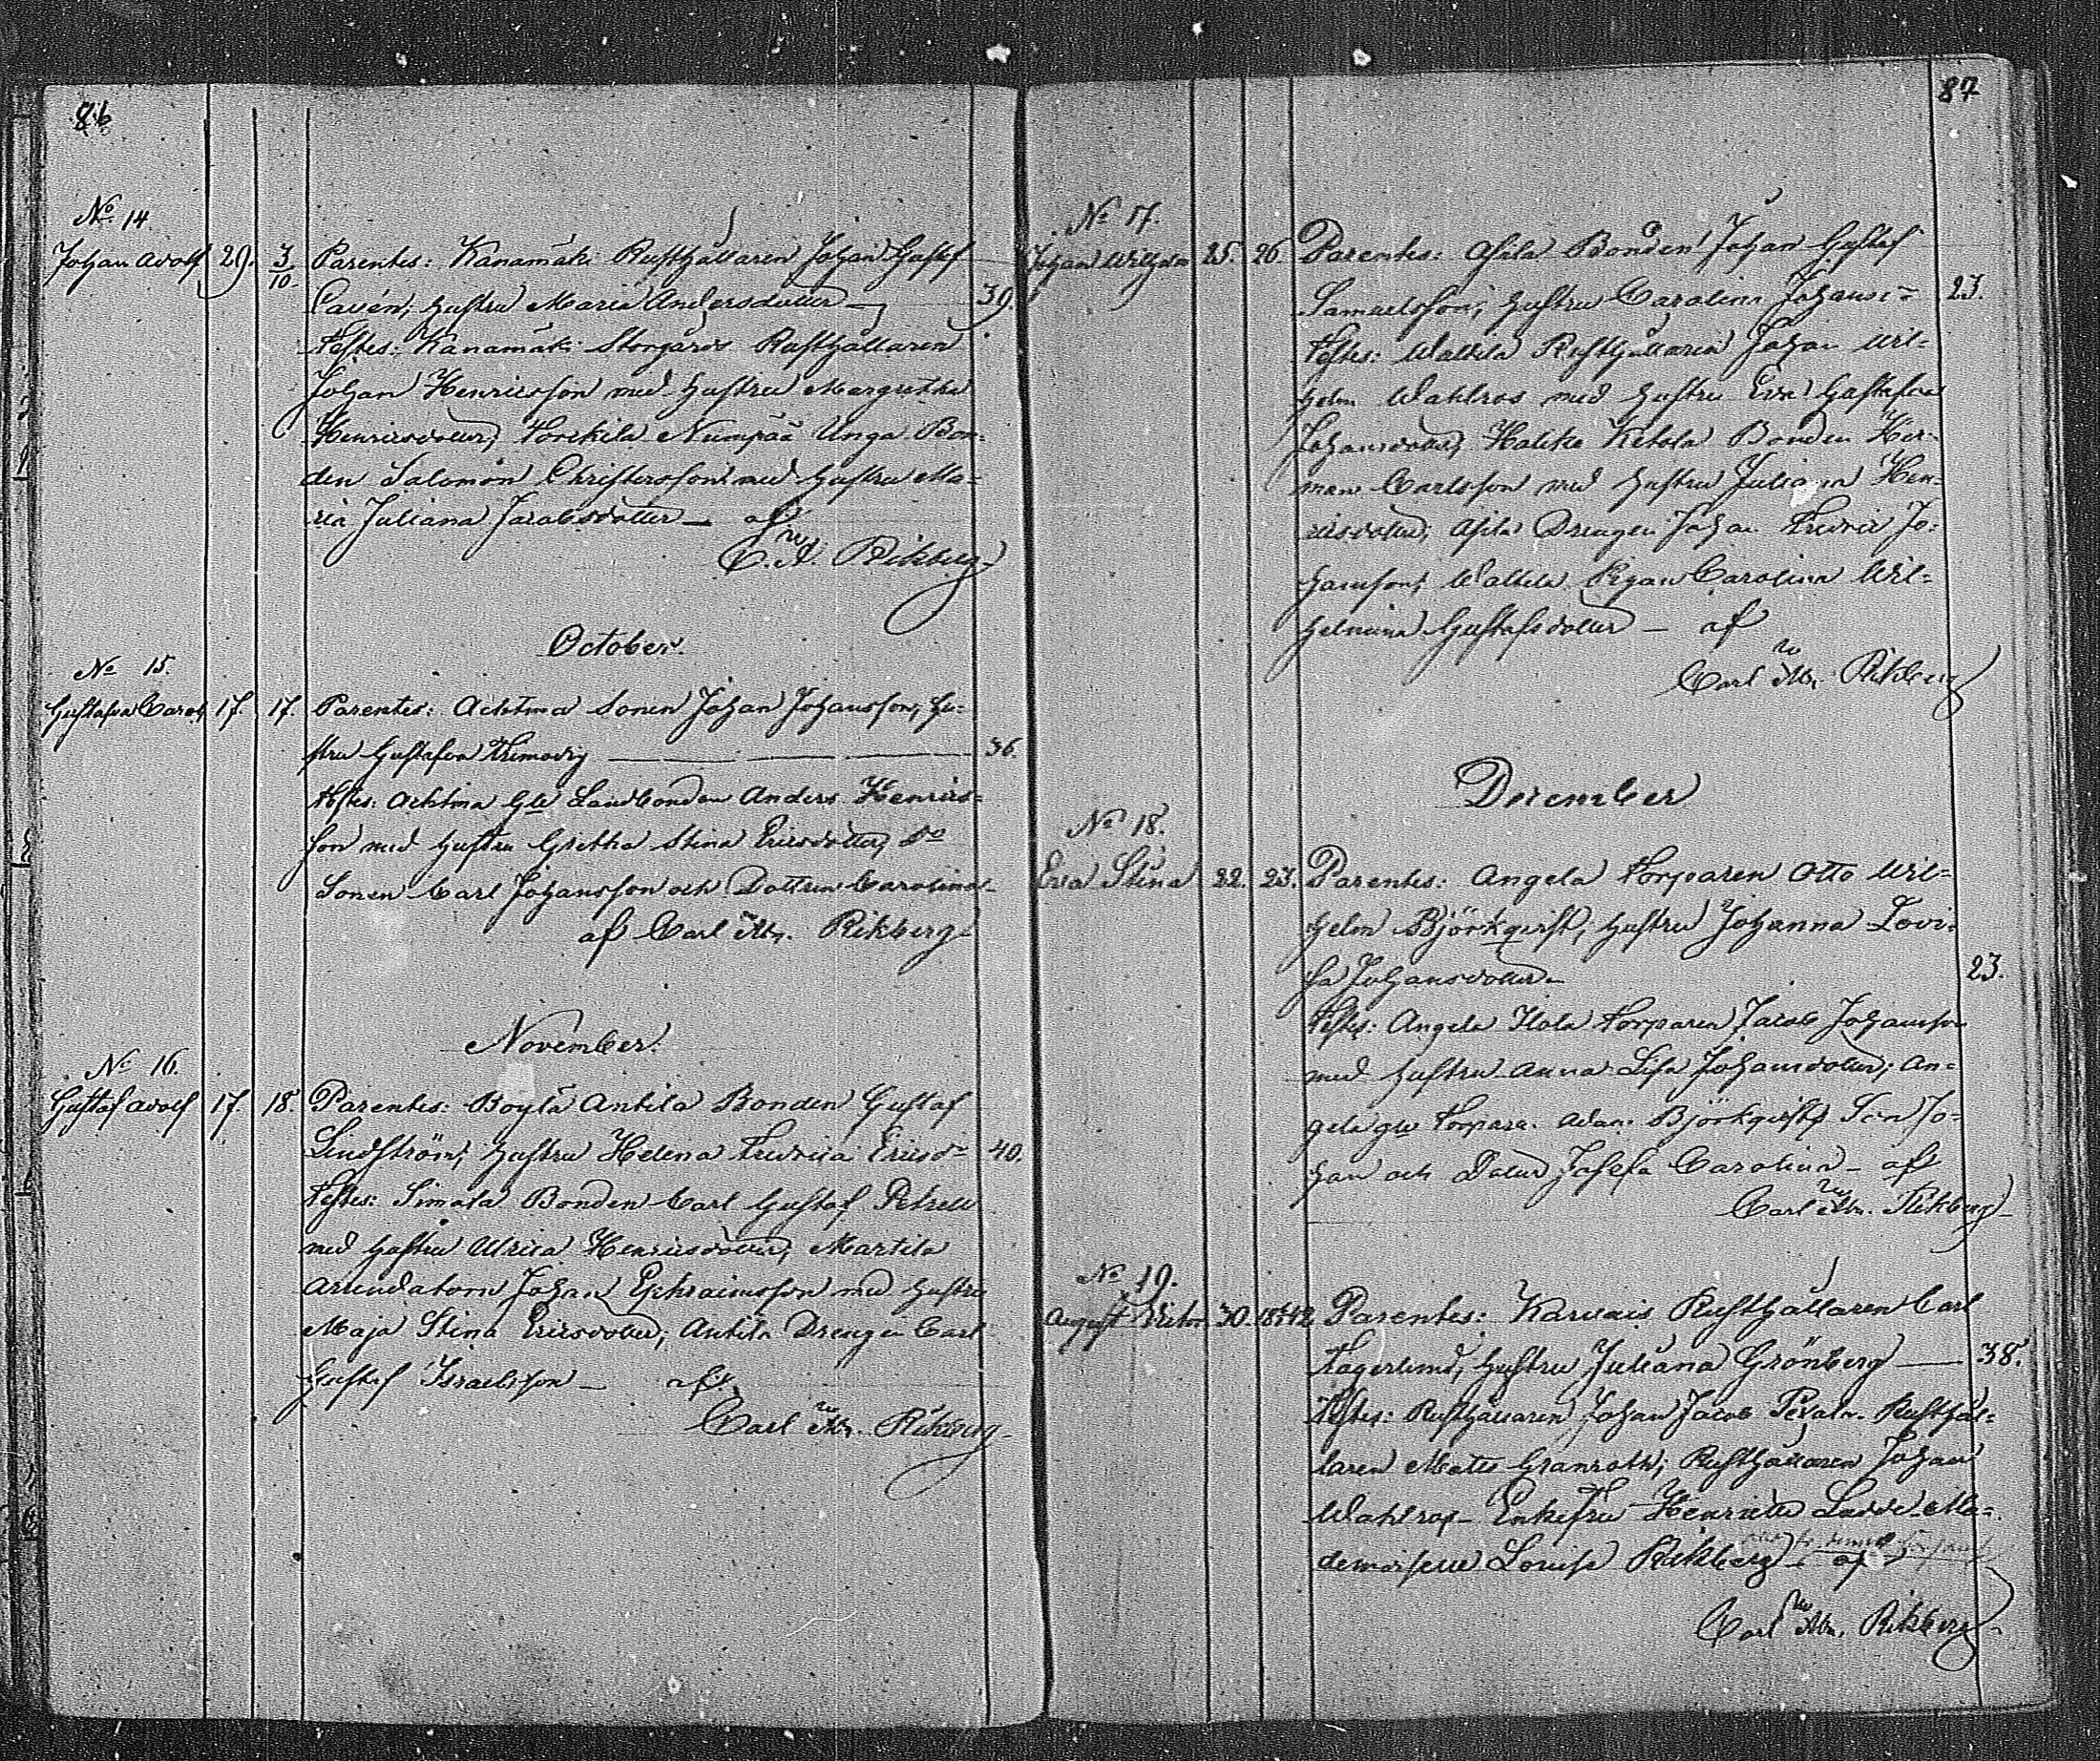 86
No 14.
Johan Adolf 29. 3/10 Parentes: Kanamäki Rusthållaren Johan Gustaf
Cavén, hustru Maria Andersdotter — 39.
Testes: Kanamäki Storgårds Rusthållaren
Johan Henricsson med hustru Margretha
Henricsdotter, Torckila Numpää Unga Bon-
den Salomon Christersson med hustru Ma-
ria Juliana Jacobsdotter — af
C. A. Rikberg
October.
No 15.
Gustafva Carol. 17. 17. Parentes: Achtma Sonen Johan Johansson, hu-
stru Gustafva — 36.
Testes: Achtma Gle Landbonden Anders Henrics-
son med hustru Gretha Stina Ericsdotter, Do
Sonen Carl Johansson och Dottren Carolina
af Carl Abr. Rikberg
November.
No 16.
Gustaf Adolf 17. 18. Parentes: Boylä Antila Bonden Gustaf
Lindström, hustru Helena Fredrica Ericsdr 40.
Testes: Simala Bonden Carl Gustaf Petrell
med hustru Ulrica Henricsdotter, Martila
Arrendatorn Johan Ephraimsson med hustru
Maja Stina Ericsdotter, Antila Drengen Carl
Gustaf Israelsson — af
Carl Abr. Rikberg
87
No 17.
Johan Wilhelm 25. 26 Parentes: Asila Bonden Johan Gustaf
Samuelsson, hustru Carolina Johansdr 23.
Testes: Waltila Rusthållaren Johan Wil-
helm Wahlros med hustru Eva Gustafva
Johansdotter, Halika Ketola Bonden Her-
man Carlsson med hustru Juliana Hen-
ricsdotter, Asila Drengen Johan Fredric Jo-
hansson, Waltila Pigan Carolina Wil-
helmina Gustafsdotter — af
Carl Abr. Rikberg
December
No 18.
Eva Stina 22. 23. Parentes: Angela Torparen Otto Wil-
helm Björkqvist, hustru Johanna Lovi-
sa Johansdotter 23.
Testes: Angela Torparen Jacob Johansson
med hustru Anna Lisa Johansdotter, An-
gela gle Torpara. Adam Björkqvists Son Jo-
han och Dotter Josefa Carolina — af
Carl Abr. Rikberg
No 19.
August Victor 30. Parentes: Karvais Rusthållaren Carl
Fagerlund, hustru Juliana Grönberg — 38.
Testes: Rusthållaren Johan Jacob Rusthål-
laren Mats Granroth, Rusthållaren Johan
Wahlros Enkefru Henriette Ma-
demoiselle Louise Rikberg af
Carl Abr. Rikberg